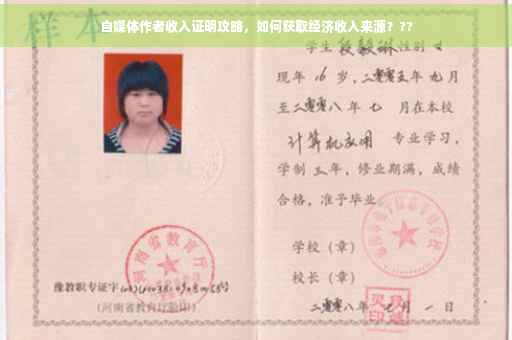 样本
自媒体作者收入证明攻略，如何获取经济收入来源？??
河南省教育厅
豫教职专证字
(河南省教育厅验印)
学生段毅琳性别女
现年16岁，二零零五年九月
至二零零八年七 月在本校
计算机应用 专业学习，
学制三年，修业期满，成绩
合格，准予毕业
学校（章）
校长（章）
二零零八年 月一日